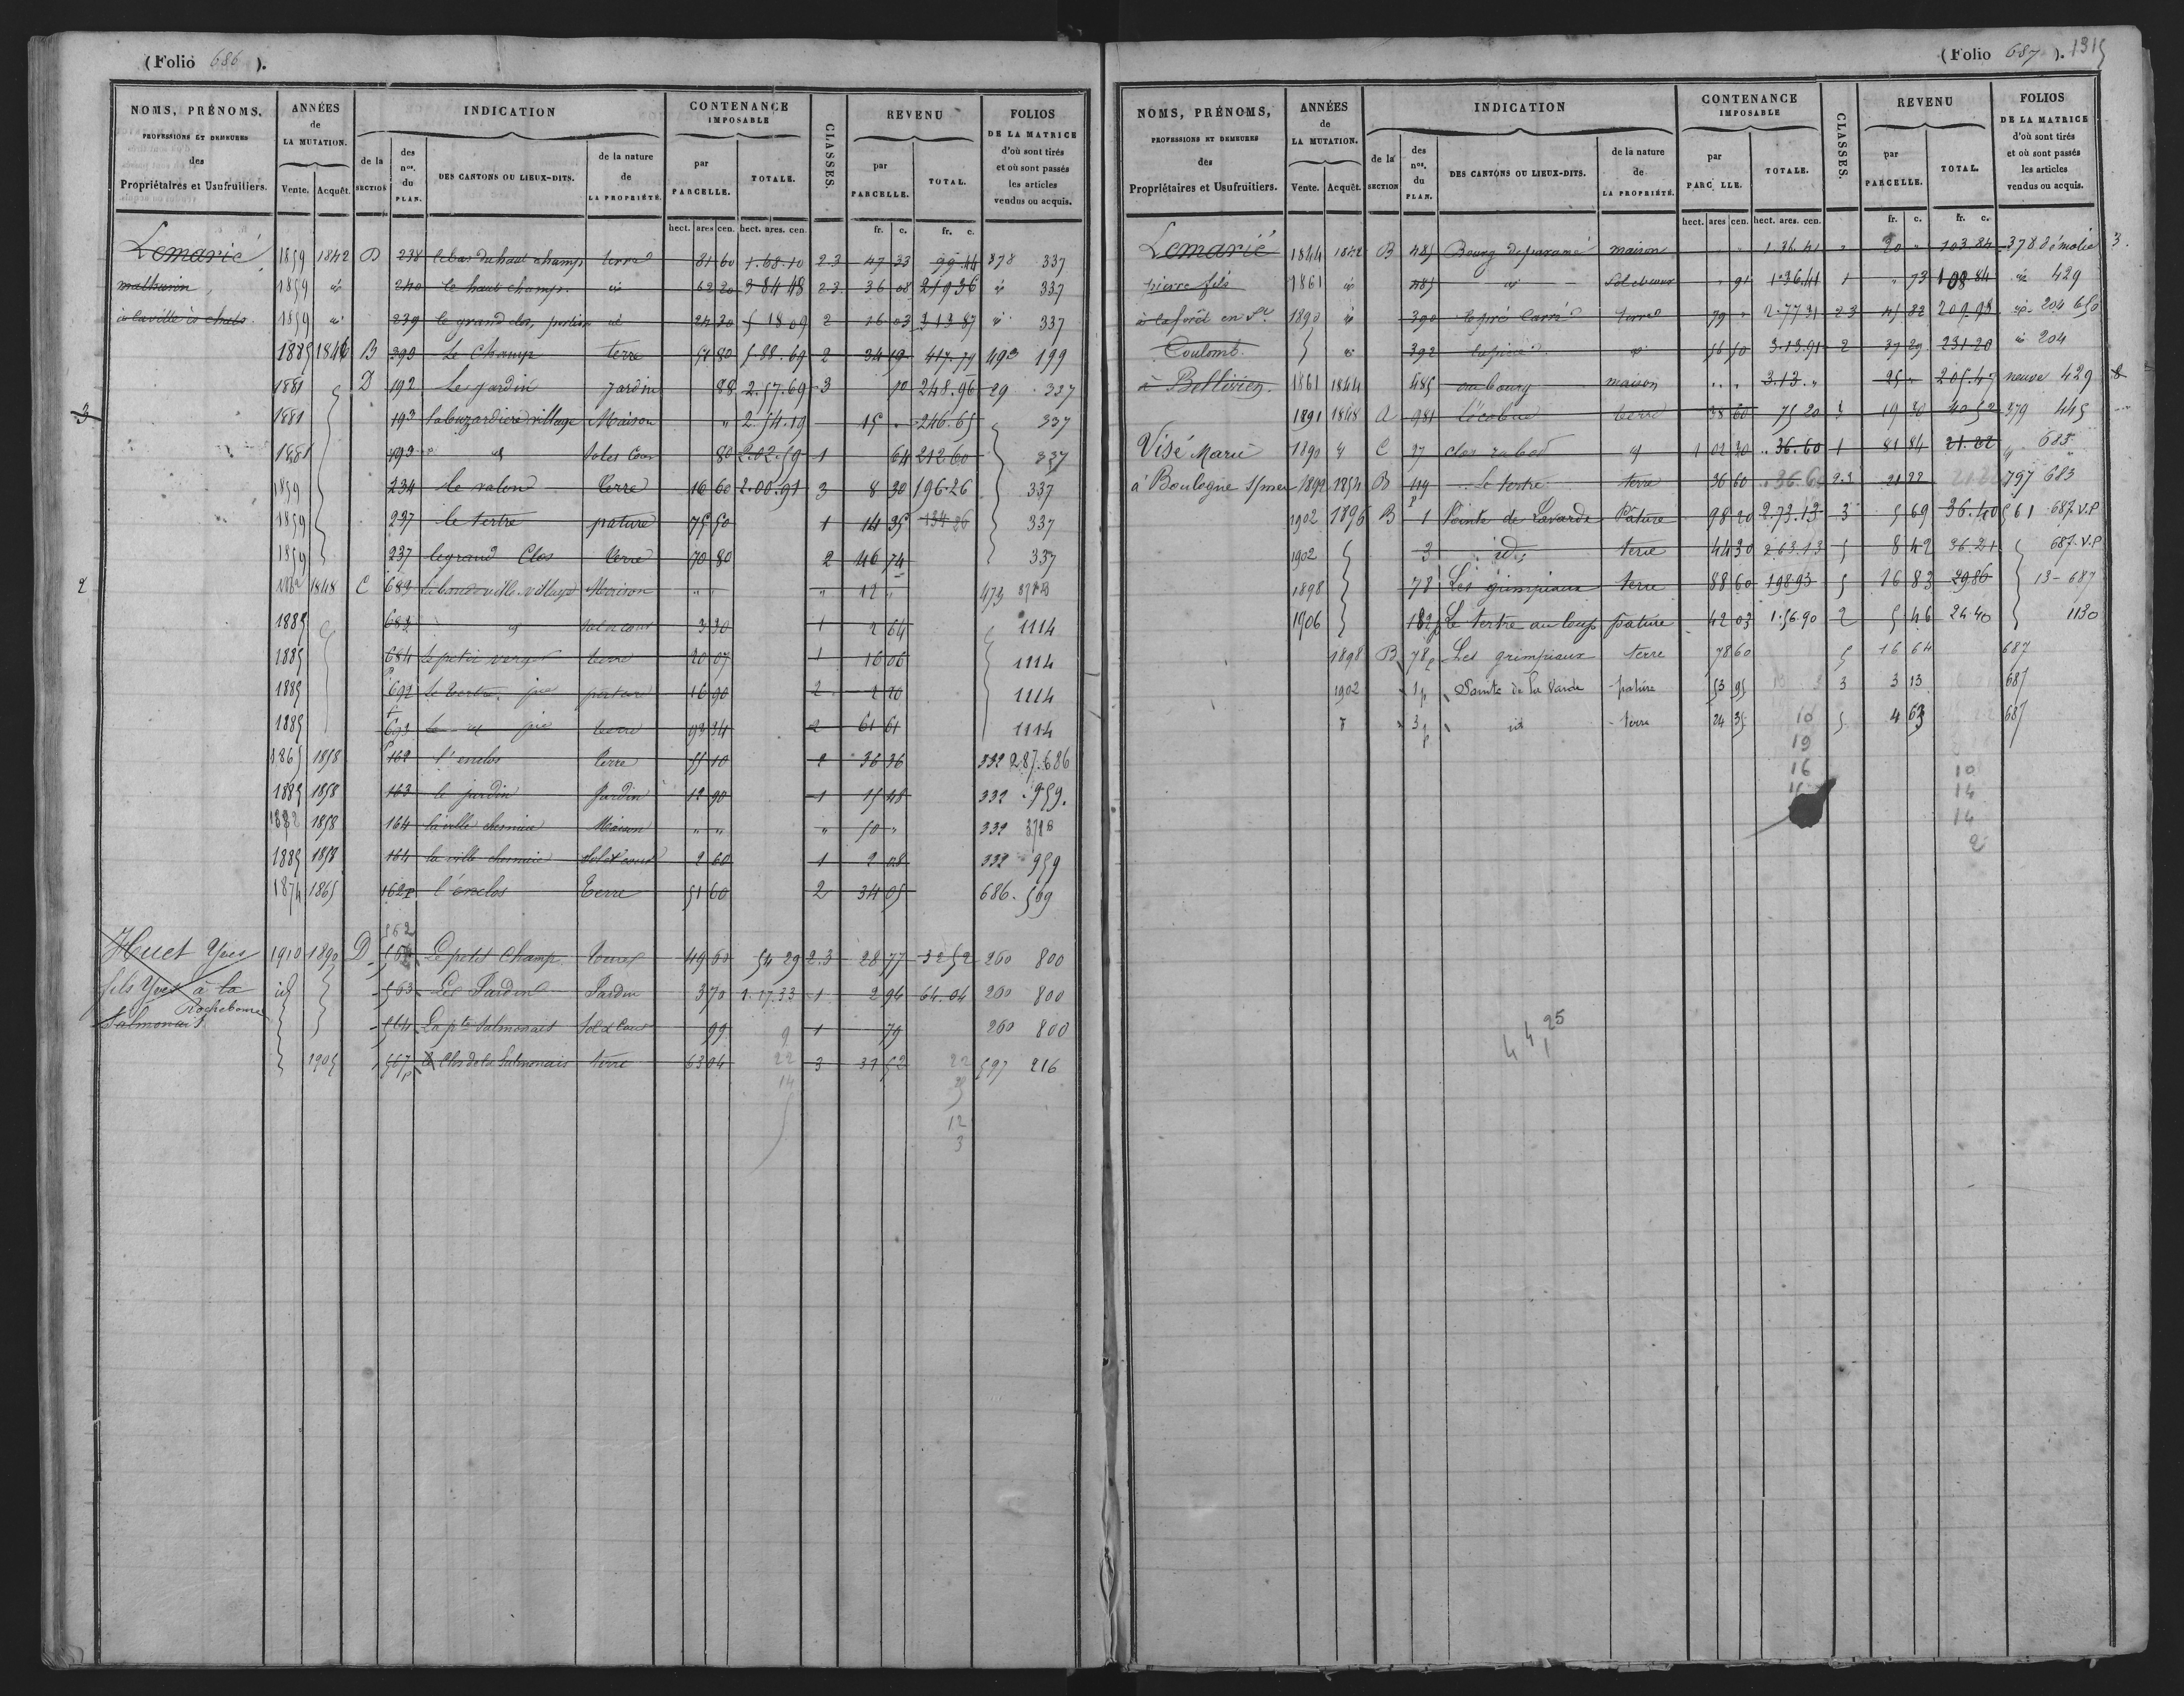 (Folio 686 ).
NOMS, PRÉNOMS, PROFESSIONS ET DEMEURES des Propriétaires et Usufruitiers.
ANNÉES de LA MUTATION. Vente. Acquêt.
INDICATION de la SECTION des nos. du PLAN. DES CANTONS OU LIEUX-DITS. de la nature de LA PROPRIÉTÉ.
CONTENANCE IMPOSABLE par PARCELLE. TOTALE.
CLASSES.
REVENU par PARCELLE. TOTAL.
FOLIOS DE LA MATRICE d'où sont tirés et où sont passés les articles vendus ou acquis.
hect. ares cen. hect. ares. cen. fr. c. fr. c.
Lemarié 1859 1842 D 238 le bas du haut champ terre 81 60 1.68.10 2.3 47 33 99.44 378 337
mathurin 1859 id 240 le haut champ id 62 20 3 84 48 2.3 36 08 219 36 id 337
1859 id 239 le grand clos, portion id 24 30 5 18 09 2 16 03 313 87 id 337
1885 1846 B 390 Le Champ terre 51 80 5.88.69 2 34 19 417.79 493 199
1881 D 192 Le jardin Jardin 88 2.57.69 3 70 248.96 29 337
3 1881 193 la buzardière village Maison " 2.54.19 15 " 246.65 337
1881 193 id Sol et Cour 80 2.02.59 1 64 212 60 337
1859 234 le valen terre 16 60 2.00.91 3 8 30 196.26 337
1859 237 le tertre pature 75 50 1 14 35 134 26 337
1859 237 le grand Clos terre 70 80 2 46 74 337
2 1848 C 683 village Maison " " " 12 " 473
1885 683 id sol et cour 3 30 1 2 64 1114
1885 684 le petit verger terre 20 07 1 16 06 1114
1885 692 Le tertre pature 16 90 2 2 20 1114
1885 693 le id terre 93 34 2 61 61 1114
1865 1858 162 l'enclos terre 55 10 2 36 36 332 287.686
1885 1858 163 le jardin Jardin 12 90 1 15 48 332 959.
1882 1858 164 la ville chesnaie Maison " " " 50 " 332
1885 1858 164 la ville chesnaie Sol et cour 2 60 1 2 08 332 959
1874 1865 162p l'énclos terre 51 60 2 34 05 686. 509
562
Huet Yves 1910 1890 D Le petit Champ terre 49 60 54 29 2.3 28 77 32 52 260 800
fils Yves à la id 563 Le Jardin Jardin 3 70 1.17.33 1 2 96 64.04 260 800
Rochebonne
Salmonais 564 La pte Salmonais Sol & Cour 99 9 1 79 260 800
1905 567p le Clos de la Salmonais terre 63 04 22 3 31 52 22 597 216
14
12
3
(Folio 687 ). 1315
NOMS, PRÉNOMS, PROFESSIONS ET DEMEURES des Propriétaires et Usufruitiers.
ANNÉES de LA MUTATION. Vente. Acquêt.
INDICATION de la SECTION des nos. du PLAN. DES CANTONS OU LIEUX-DITS. de la nature de LA PROPRIÉTÉ.
CONTENANCE IMPOSABLE par PARC LLE. TOTALE.
CLASSES.
REVENU par PARCELLE. TOTAL.
FOLIOS DE LA MATRICE d'où sont tirés et où sont passés les articles vendus ou acquis.
hect. ares cen. hect. ares. cen. fr. c. fr. c.
Lemarié 1844 1842 B 485 Bourg de paramé maison 1.36.41 " 20 " 103.84 378 démolie 3.
pierre fils 1861 id 485 id Sol et cour " 91 1.36.41 1 " 73 108 84 id 429
à la forêt en St 1890 id 390 le pré Carré terre 79 " 2.77.31 2.3 45 82 209.98 id 204 650
Coulomb. id 392 id 56 50 3.13.91 2 37 29 231 20 id 204
à Bellevien. 1861 1844 485 au bourg maison " " 3.13. " 25 " 205.4 neuve 429 8
1891 1848 A 981 terre 38 60 75 20 3 19 30 40 52 379 445
Visé Marie 1890 C 27 clos rabot id 1 02 30 .. 36.60 1 81 84 21.22 685
à Boulogne s/mer 1892 1854 B 119 Le tertre terre 36 60 36.60 2.3 21 22 797 683
1902 1896 B 1p Pointe de Lavarde Pâture 98 20 2.73.13 3 5 69 36.40 561 687.V.P
1902 3 id. terre 44 30 2 63.13 5 8 42 36.21 687.V.P
1898 78 Les grimpiaux terre 88 60 198.93 5 16 83 29.86 13-687
1906 182p Le tertre au loup pature 42 03 1.56.90 2 5 46 24.40 1130
1898 B 78p Les grimpiaux terre 78 60 5 16 64 687
1902 1p Pointe de la Varde pâture 53 95 3 3 13 687
3p id terre 24 35 10 5 4 63 687
19
16 10
14
14
2
25